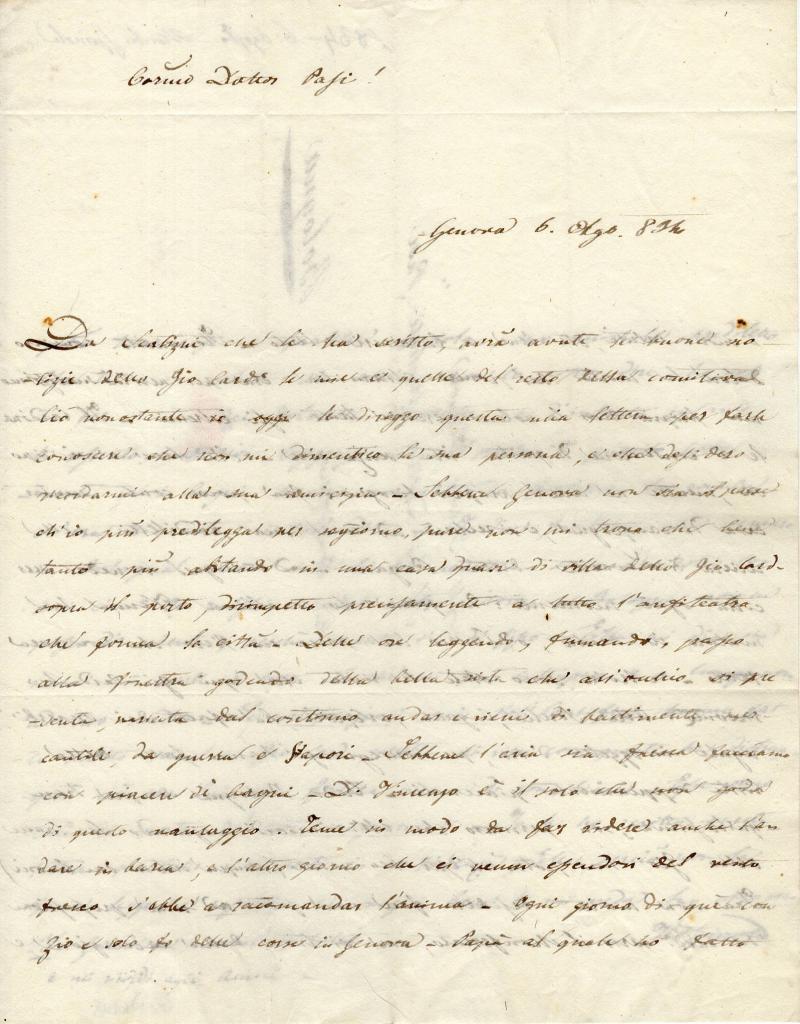 Carmo Dottor Pasi!
Genova 6. Ago. 834
Da che le ha scritto, avrà avute le buone no
-tizie dello Zio Card.e le mie e quelle del resto della comitiva
Ciò nonostante io oggi le direggo questa mia lettera per farle
conoscere che non mi dimentico la sua persona, e che desidero
ricordarmi alla sua amicizia - Sebbene Genova non sia il paese
ch'io più predilegga per sogiorno, pure non mi trovo che bene
tanto più abitando in una casa quasi di villa dello Zio Card.
sopra il porto, dirimpetto precisamente a tutto l'anfiteatro
che forma la città - Delle ore leggendo, fumando, passo
alla finestra godendo della bella vista che all'occhio si pre
-senta, variata dal continuo andar e venir di bastimenti mer
cantili da guerra e Vapori - Sebbene l'aria sia fresca facciamo
con piacere di bagni - D. Vincenzo è il solo che non goda
di questo vantaggio. Teme in modo da far ridere anche l'an
dare in barca, e l'altro giorno che ci venne essendovi del vento
fresco s'ebbe a racomandar l'anima - Ogni giorno di quì con
Zio e solo fo delle corse in Genova - Papà al quale ho fatto